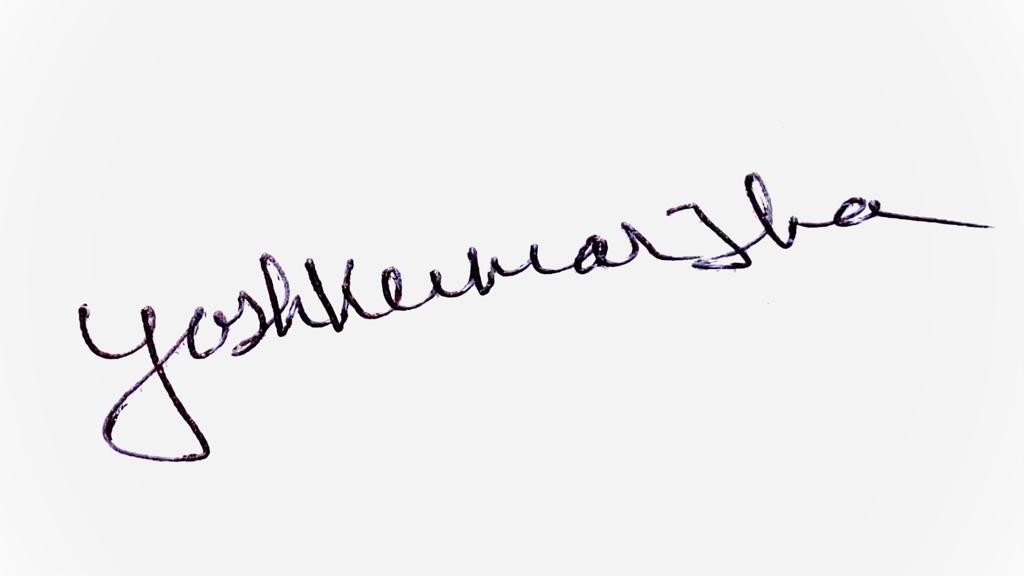 Yash Kumar Jha